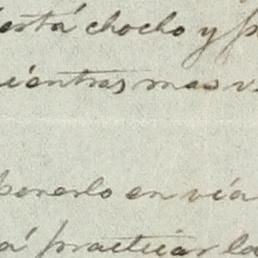 está chocho y p
ientras mas v
ponerlo en via
á practicar la